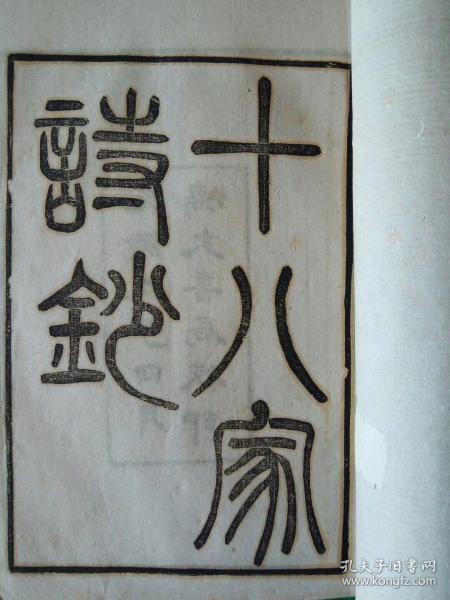 十八家
詩鈔
孔夫子旧书网
www.kongfz.com